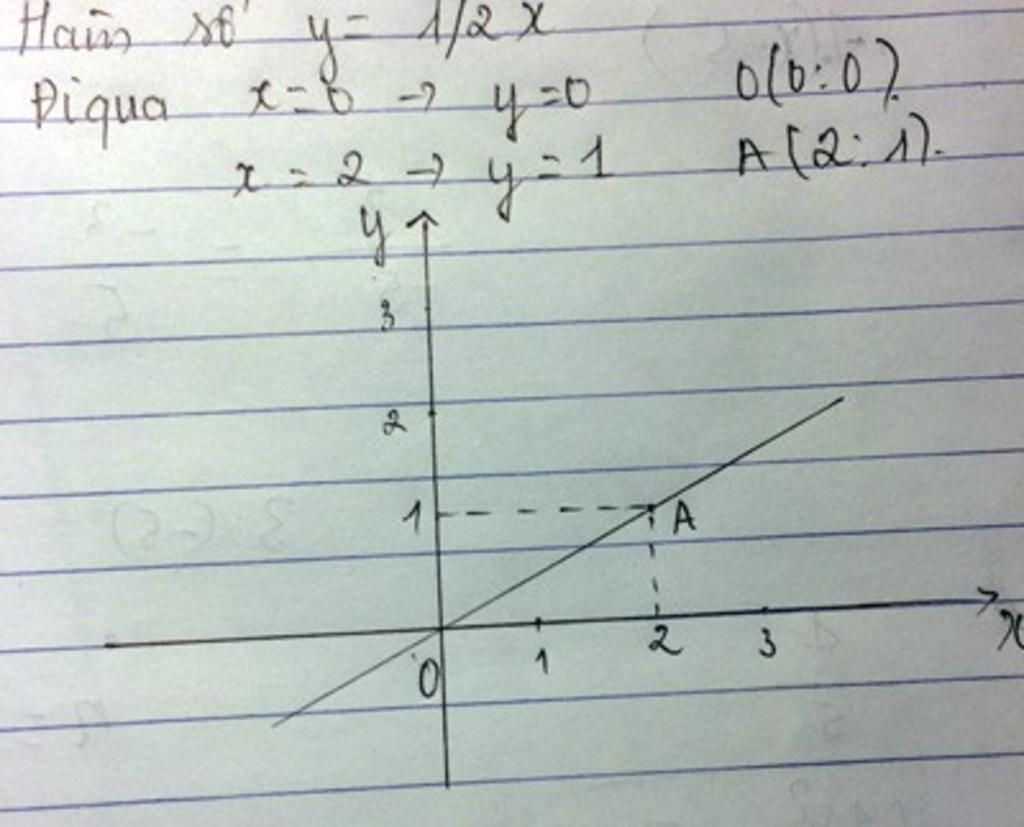 Hàm số y = 1/2 x
Đi qua x = 0 → y = 0 O(0; 0).
x = 2 → y = 1 A(2; 1).
y
3
2
1
A
O
1
2
3
x